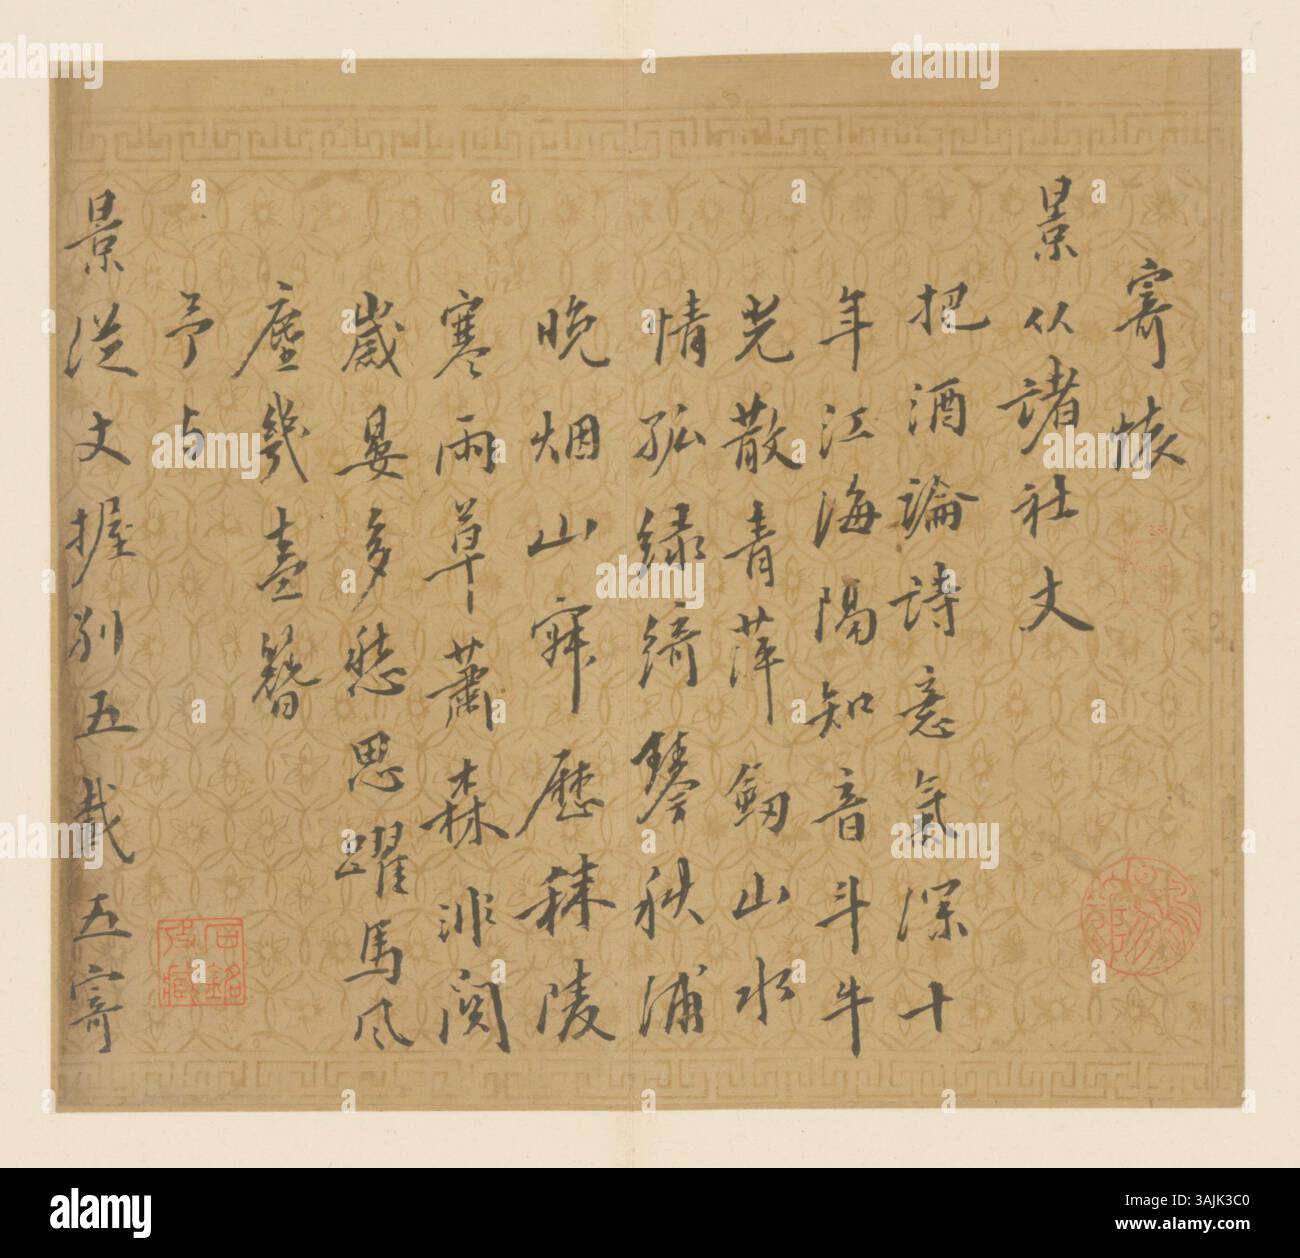 寄懷
景从諸社丈
把酒論詩意氣深十
年江海隔知音斗牛
光散青萍劒山水
情孤緑綺琴秋浦
晚烟山寂歷秣陵
寒雨草蕭森淮関
歲晏多愁思躍馬風
塵幾盍簪
予与
景從丈握別五載五寄
石銘
收藏
alamy
Image ID: 3AJK3C0
www.alamy.com